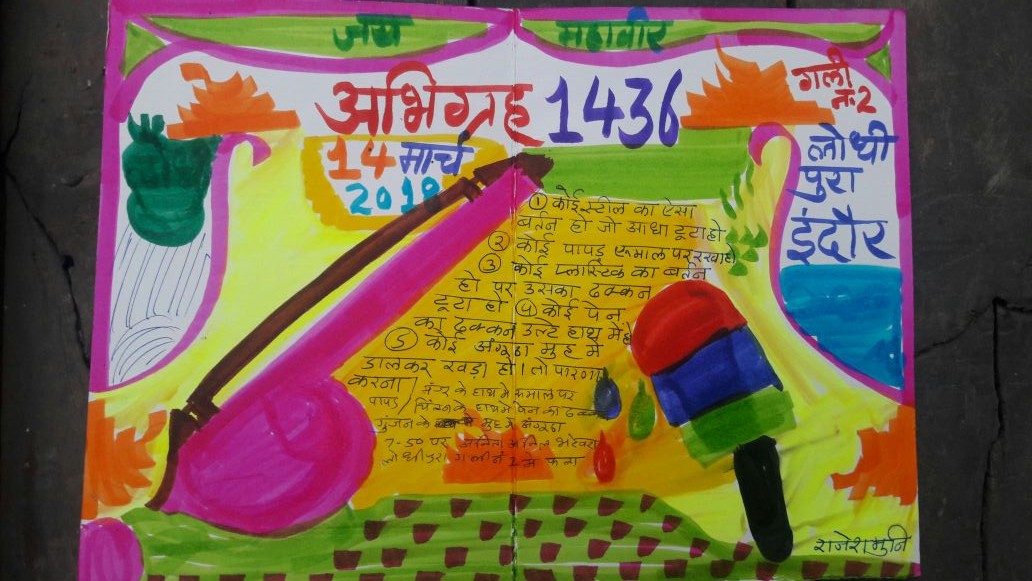 जय महावीर
अभिग्रह 1436
गली
नः2
14 मार्च
2018
लोधी
पुरा
इंदौर
① कोई स्टील का ऐसा
बर्तन हो जो आधा टूटा हो
② कोई पापड़ रूमाल पर रखा हो
③ कोई प्लास्टिक का बर्तन
हो पर उसका ढक्कन
टूटा हो ④ कोई पेन
का ढक्कन उल्टे हाथ में हो
⑤ कोई अंगूठा मुह में
डालकर खड़ा हो। तो पारणा
करना
के हाथ में रूमाल पर
पापड़ के हाथ में पेन का ढक्कन
गुंजन के मुह में अंगूठा
7-50 पर अनिता अनिल
लोधीपुरा गली नं 2 में
राजेशमुनि